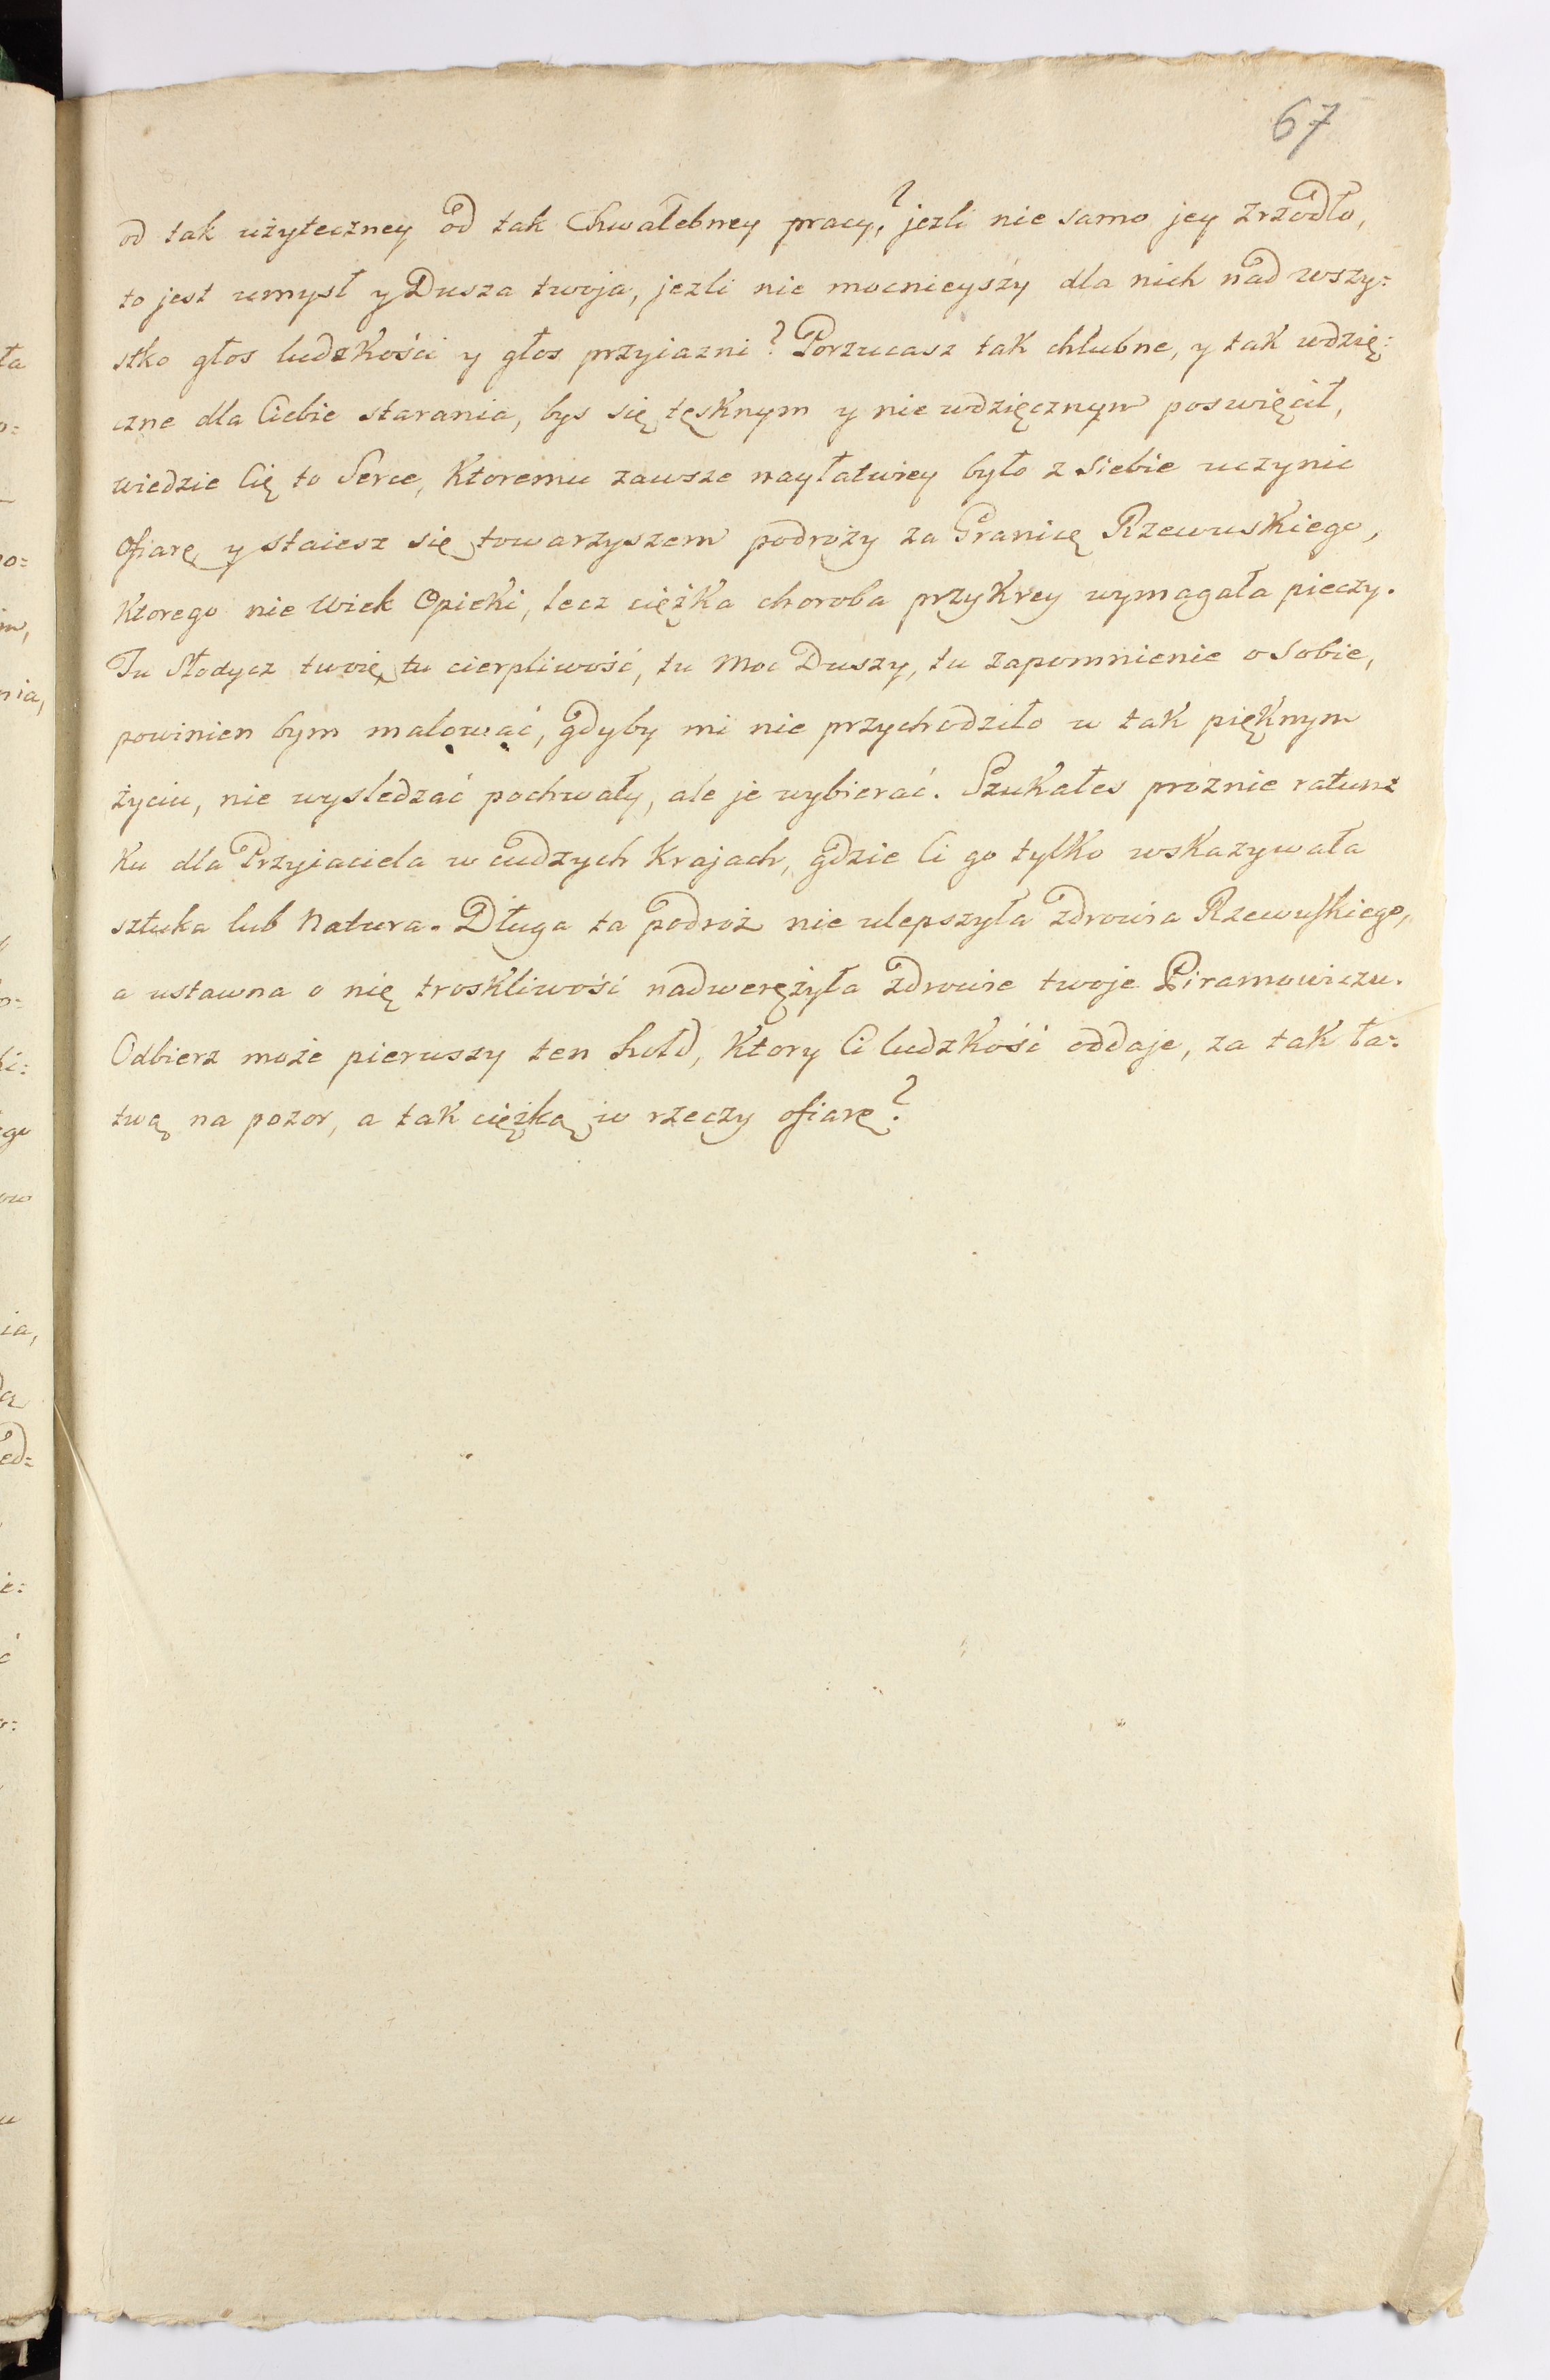 67
od tak użyteczney od tak Chwalebney pracy,? jezli nie samo jey zrzodło,
to jest umysł y Dusza twoja, jezli nie mocnieyszy dla nich nad wszy=
stko głos ludzkości y głos przyiazni? Porzucasz tak chlubne, y tak wdzię=
czne dla Ciebie starania, bys się tęsknym y niewdzięcznym poswięcił,
wiedzie Cię to Serce, Ktoremu zawsze nayłatwiey było z Siebie uczynic
Ofiarę y staiesz się towarzyszem podroży za Granicę Rzewuskiego,
Ktorego nie Wiek Opieki, lecz ciężka choroba przykrey wymagała pieczy.
Tu Słodycz twoię, tu cierpliwość, tu Moc Duszy, tu zapomnienie o Sobie,
powinien bym malować, gdyby mi nie przychodziło w tak pięknym
życiu, nie wysledzać pochwały, ale je wybierać. Szukałes proznie ratun=
ku dla Przyiaciela w cudzych Krajach, gdzie Ci go tylko wskazywała
sztuka lub Natura. Długa ta podroż nie ulepszyła zdrowia Rzewuskiego,
a ustawna o nię troskliwość nadwerężyła zdrowie twoje Piramowiczu.
Odbierz może pierwszy ten hołd, Ktory Ci ludzkość oddaje, za tak ła=
twą na pozor, a tak ciężką w rzeczy ofiarę?